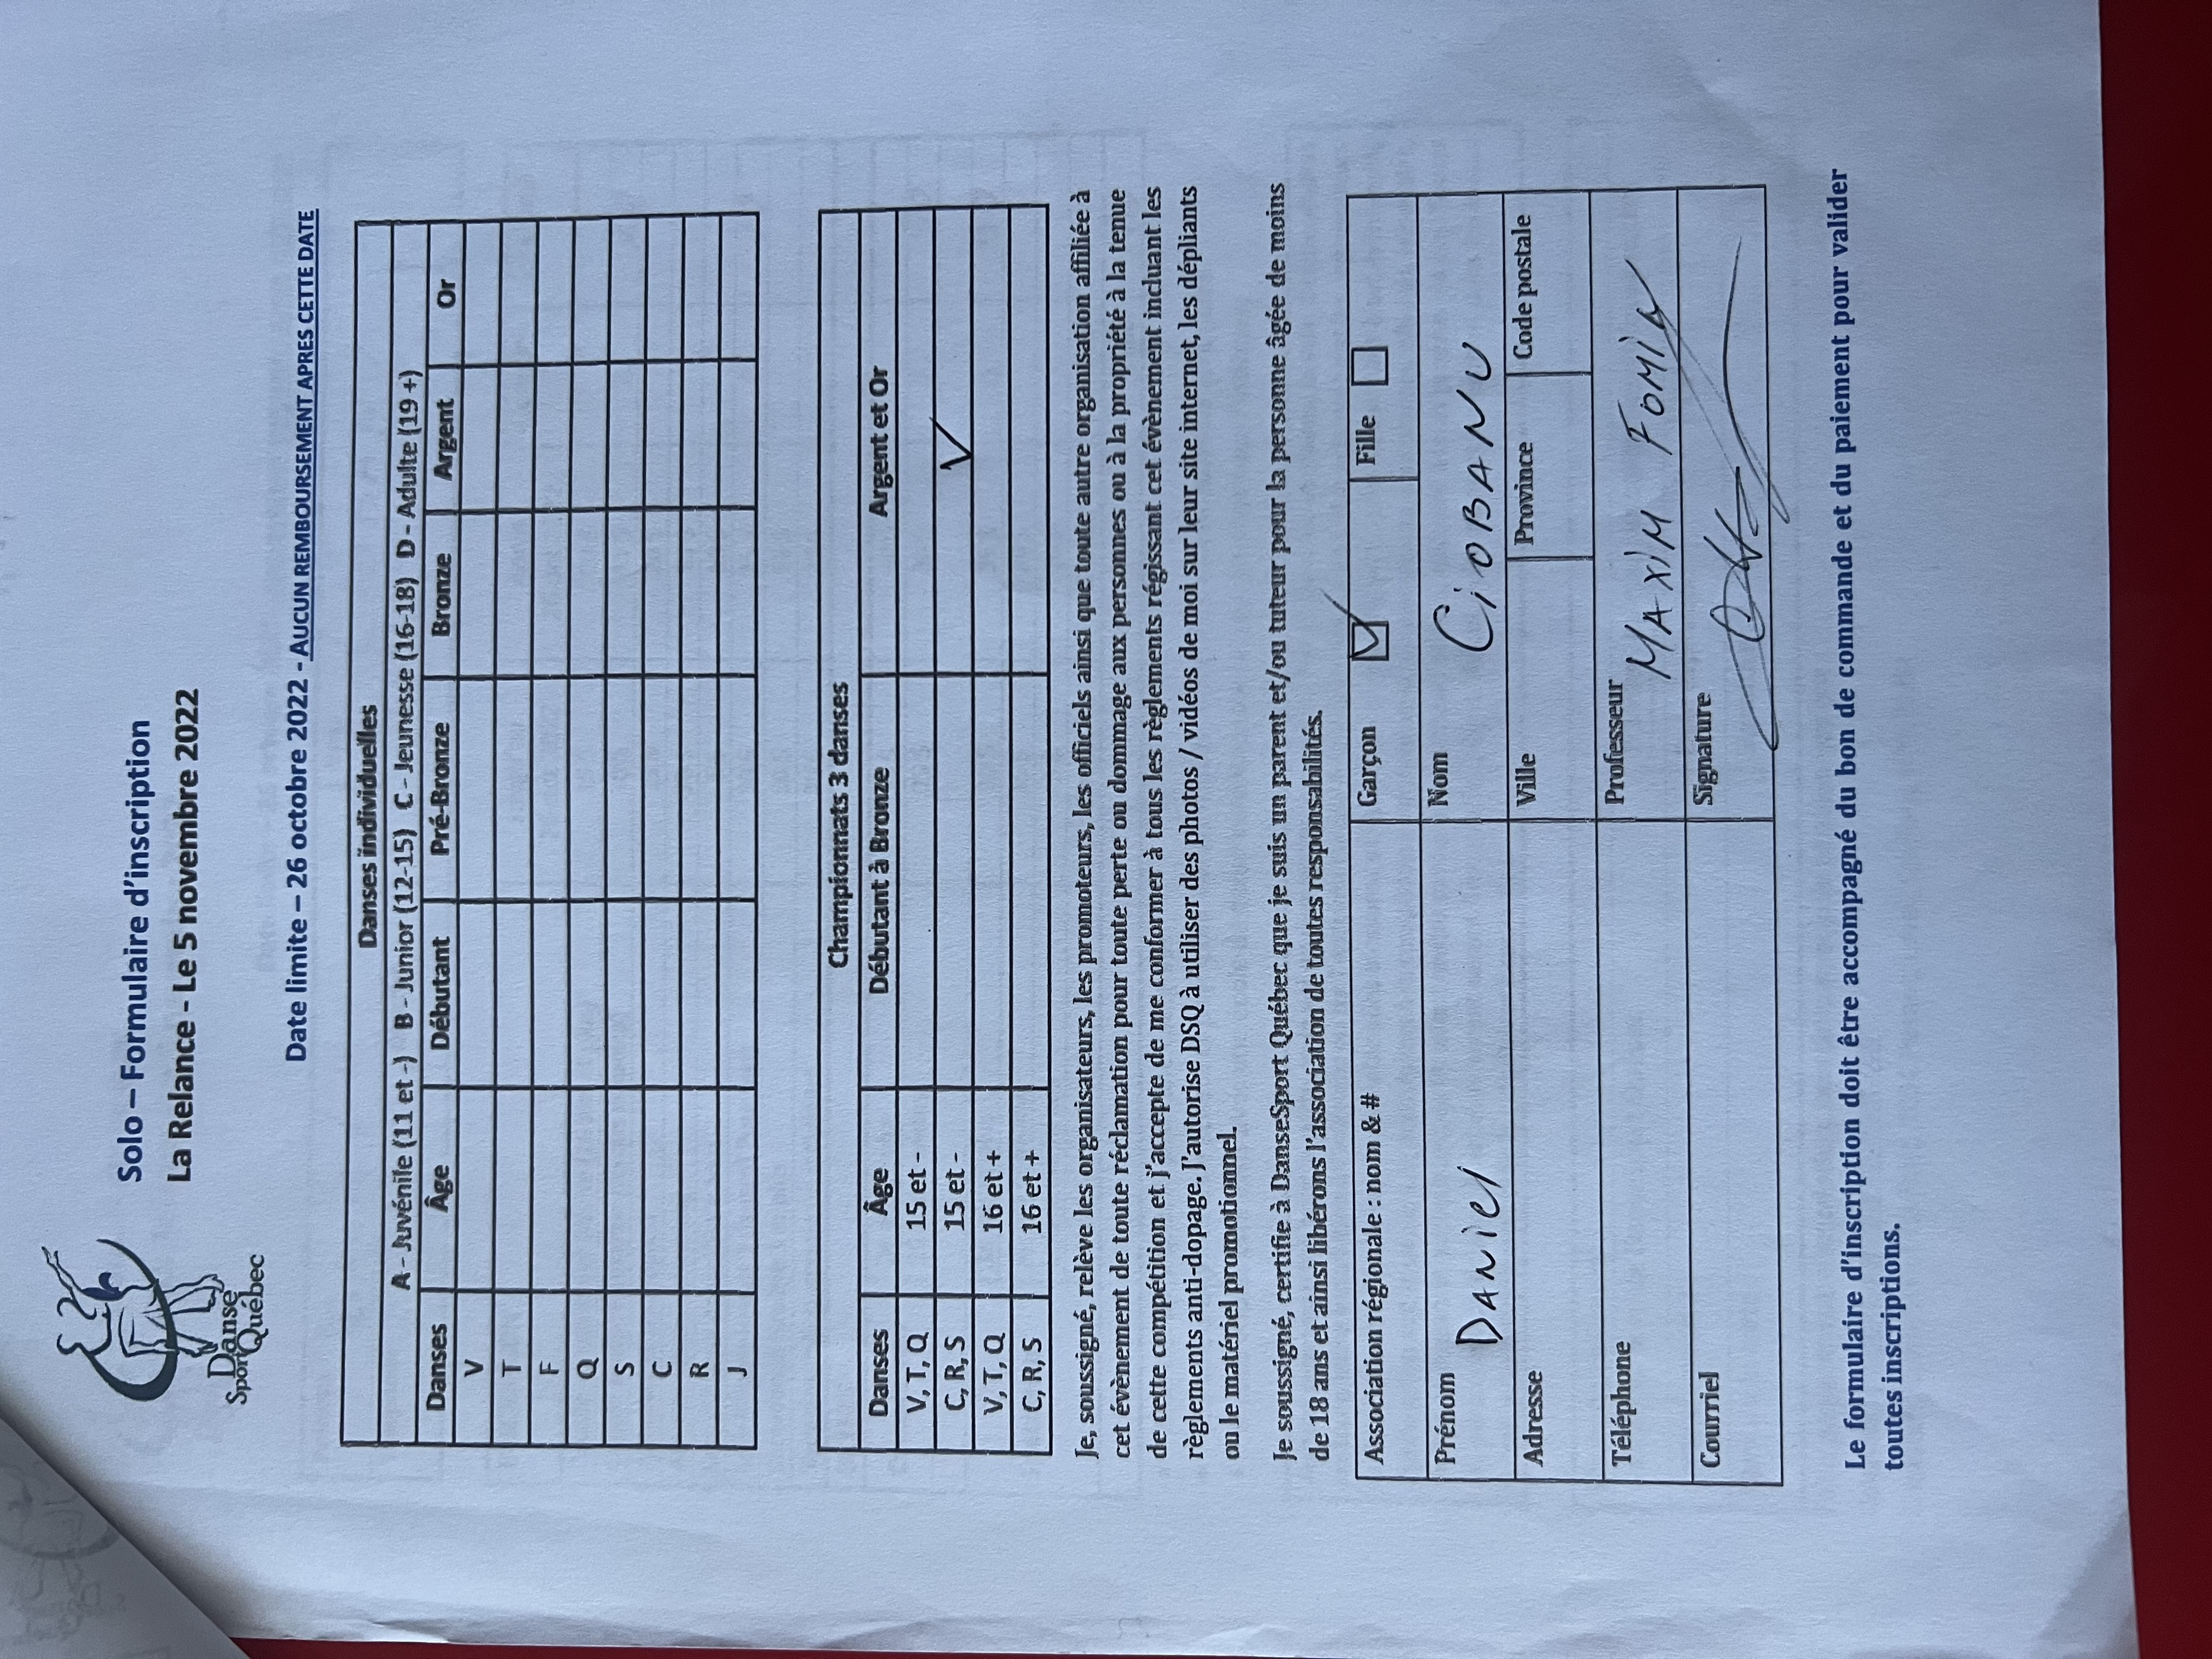 Danse
Sport Québec
Solo – Formulaire d'inscription
La Relance - Le 5 novembre 2022
Date limite – 26 octobre 2022 - AUCUN REMBOURSEMENT APRES CETTE DATE
Danses individuelles
A - Juvénile (11 et -) B - Junior (12-15) C - Jeunesse (16-18) D - Adulte (19 +)
Danses Âge Débutant Pré-Bronze Bronze Argent Or
V
T
F
Q
S
C
R
J
Championnats 3 danses
Danses Âge Débutant à Bronze Argent et Or
V, T, Q 15 et -
C, R, S 15 et - ✓
V, T, Q 16 et +
C, R, S 16 et +
Je, soussigné, relève les organisateurs, les promoteurs, les officiels ainsi que toute autre organisation affiliée à
cet évènement de toute réclamation pour toute perte ou dommage aux personnes ou à la propriété à la tenue
de cette compétition et j'accepte de me conformer à tous les règlements régissant cet évènement incluant les
règlements anti-dopage. J'autorise DSQ à utiliser des photos / vidéos de moi sur leur site internet, les dépliants
ou le matériel promotionnel.
Je soussigné, certifie à DanseSport Québec que je suis un parent et/ou tuteur pour la personne âgée de moins
de 18 ans et ainsi libérons l'association de toutes responsabilités.
Association régionale : nom & # Garçon ☑ Fille ☐
Prénom DANiEl Nom CiOBANU
Adresse Ville Province Code postale
Téléphone Professeur MAXiM FOMiN
Courriel Signature
Le formulaire d'inscription doit être accompagné du bon de commande et du paiement pour valider
toutes inscriptions.